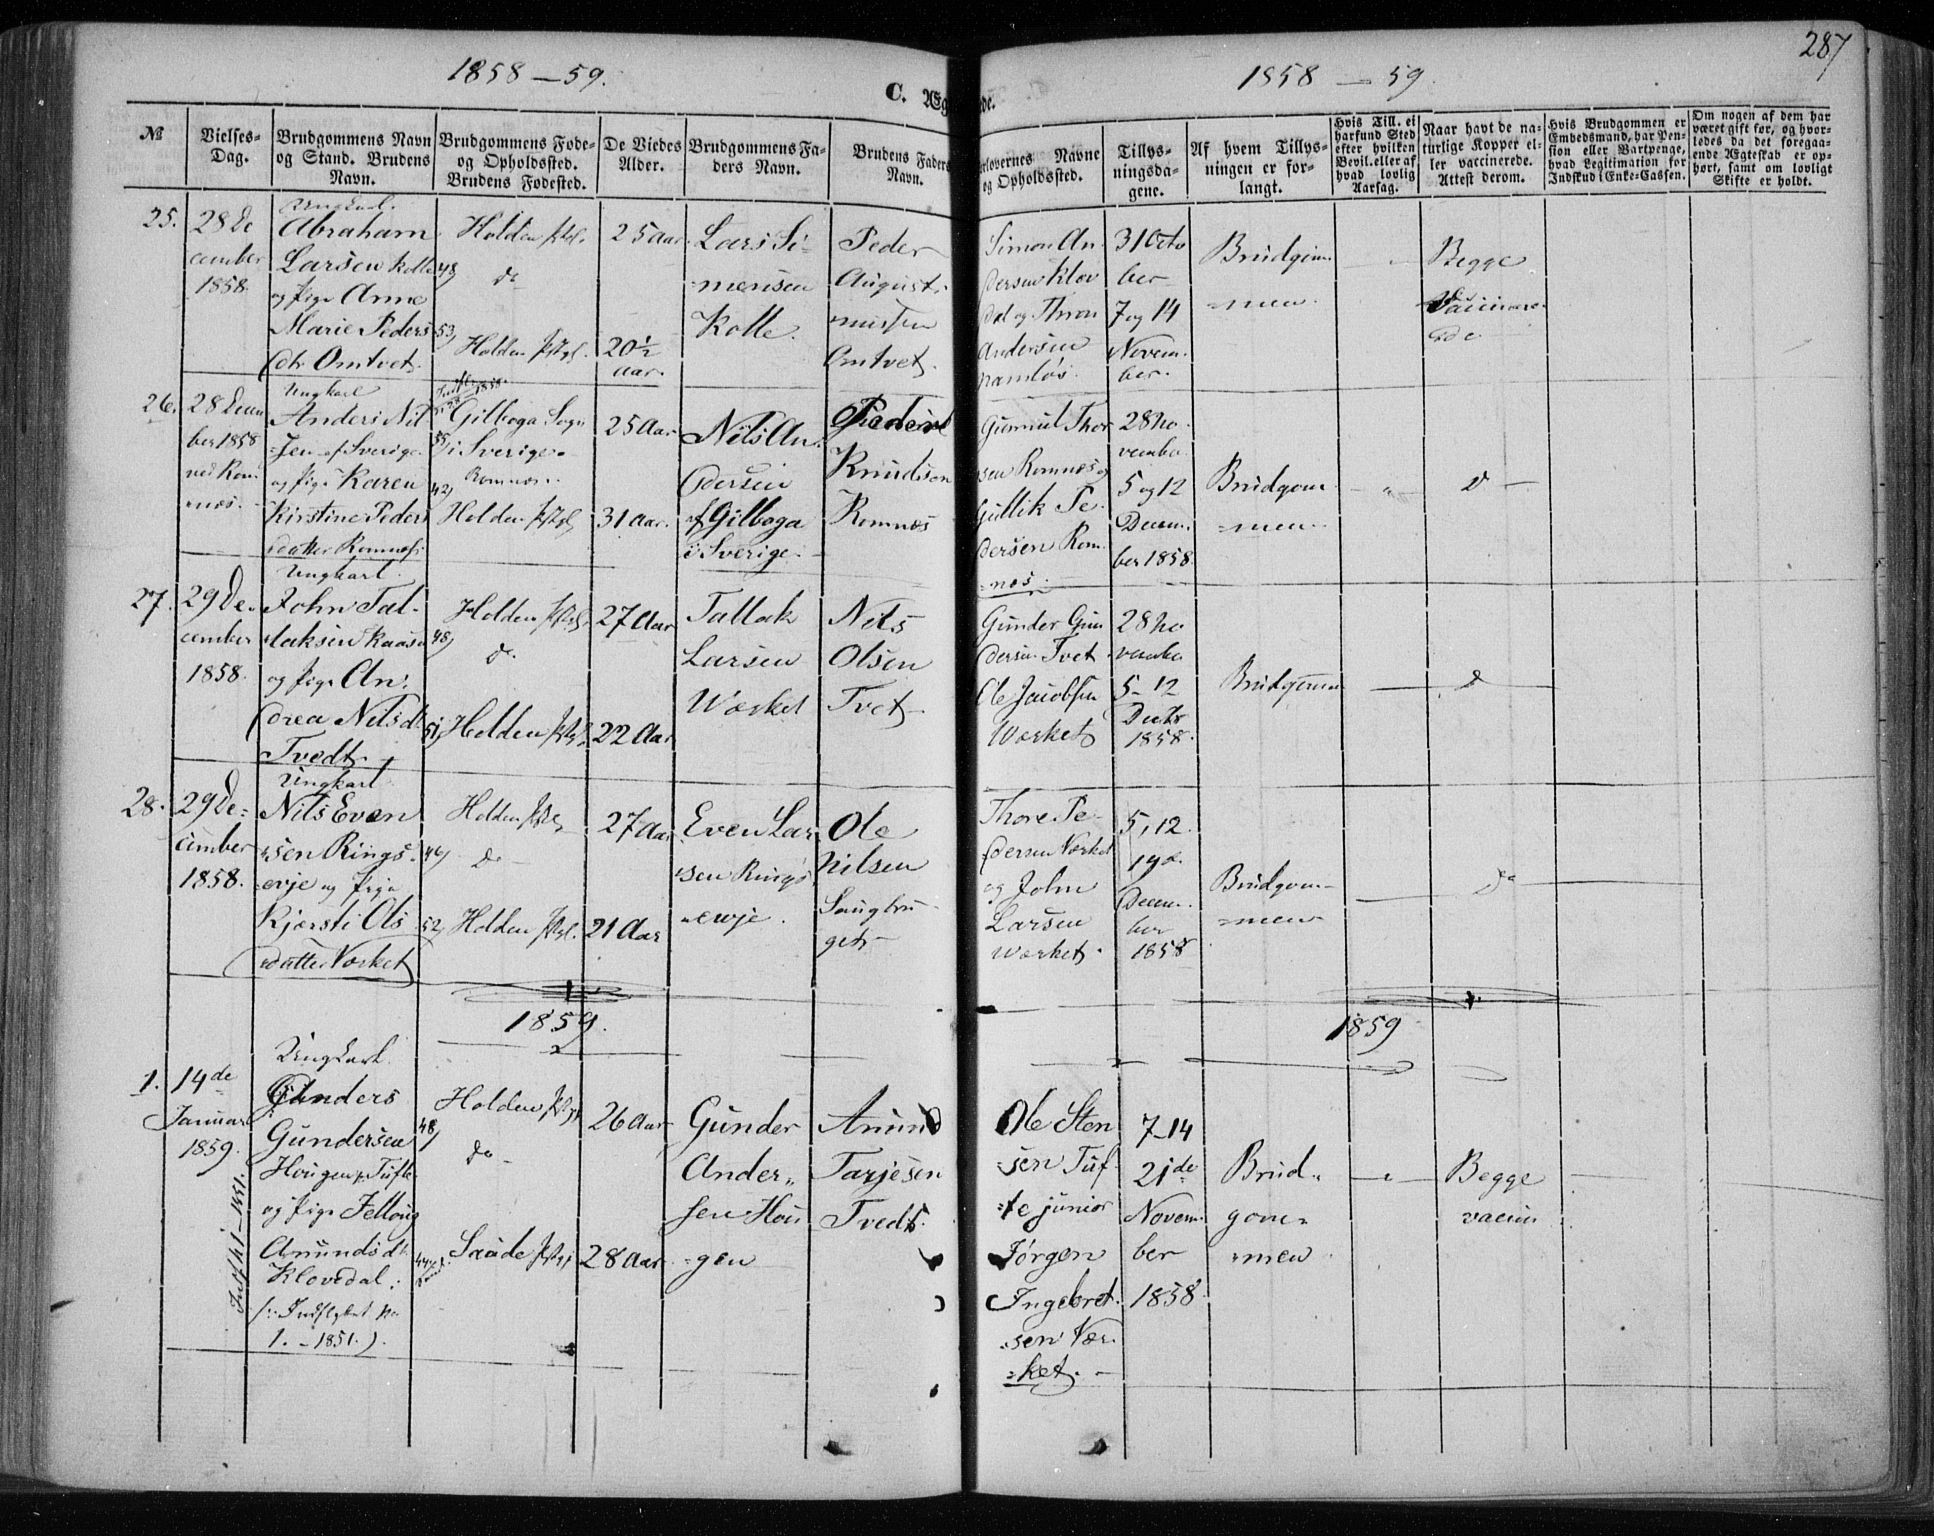 287
1858 – 59.
1858 – 59.
C. Æg
de.
№
Vielses-
Dag.
Brudgommens Navn
og Stand. Brudens
Navn.
Brudgommens Føde-
og Opholdssted.
Brudens Fødested.
De Viedes
Alder.
Brudgommens Fa-
ders Navn.
Brudens Faders
Navn.
orlovernes Navne
og Opholdssted.
Tillys-
ningsda-
gene.
Af hvem Tillys-
ningen er for-
langt.
Hvis Till. ei
har fund Sted
efter hvilken
Bevil. eller af
hvad lovlig
Aarsag.
Naar havt de na-
turlige Kopper el-
ler vaccinerede.
Attest derom.
Hvis Brudgommen er
Embedsmand, har Pen-
sion eller Vartpenge,
hvad Legitimation for
Indskud i Enke-Cassen.
Om nogen af dem har
været gift før, og hvor-
ledes da det foregaa-
ende Ægteskab er op-
hørt, samt om lovligt
Skifte er holdt.
25.
28 De
cember
1858.
Ungkarl.
Abraham
Larsen Kolle
og Pige Anne
Marie Peders
dtr Omtvet.
48,
53,
Holden
do
Holden
25 Aar.
20½
Aar.
Lars Si-
monsen
Kolle.
Peder
August-
Omtvet.
Simon An
dersen Klov
dal og Thron
Andersen
Namløs.
31 Octo
ber
7 og 14
Novem.
ber.
Brudgom
men.
Begge
Vaccinere
de.
26.
28 Decem
ber 1858
ved Rom
nes.
Ungkarl
Anders Nil
sen af Sverige
og Pige Karen
Kirstine Peders
datter Romnes
42,
Gilboga Sogn
i Sverige.
Romnes.
Holden
25 Aar
31 Aar.
Nils An.
dersen
af Gilboga
i Sverige.
Peder
Knudsen
Romnes
Gunnul Thor
sen Romnes og
Gullik Pe-
dersen Rom.
nes.
28 No
vember
5 og 12
Decem.
ber 1858.
Brudgom
men
27.
29 De.
cember
1858.
Ungkarl.
John Tal-
laksen Kaasa
og Pige An.
drea Nilsdtr
Tvedt.
48,
51,
Holden
do.
Holden
27 Aar
22 Aar
Tallak
Larsen
Værket
Nils
Olsen
Tvet
Gunder Gun
dersen Tvet
Ole Jacobsen
Værket
28 No
vember
5 – 12
Decbr
1858.
Brudgommen
28.
29 De=
cember
1858.
Ungkarl
Nils Even
sen Rings.
evje og Pige
Kjersti Ols
datter Værket
52,
Holden
do
Holden
27 Aar
21 Aar
Even Lar
sen Rings
evje.
Ole
Nilsen
Saugbru
get
Thore Pe-
dersen Værket
og John
Larsen
Værket.
5, 12.
19de
Decem.
ber
1858
Brudgom-
men
do
1859.
1859
1.
14de
Januar
1859.
Ungkarl.
Gunders
Gundersen
Hougen p. Tufte
og Pige
Amundsdtr
Klovedal.
(: Indflyttet No
1. – 1851.)
Indfl. 1 – 1851.
48,
Holden
do
Saude
26 Aar
28 Aar
Gunder
Ander„
sen Hou
gen
Amund
Tarjesen
Tvedt.
Ole Sten
sen Tuf
te junior
Jørgen
Ingebret.
sen Vær.
ket.
7–14
21de
Novem.
ber
1858.
Brud„
gom„
men
Begge
vaccin